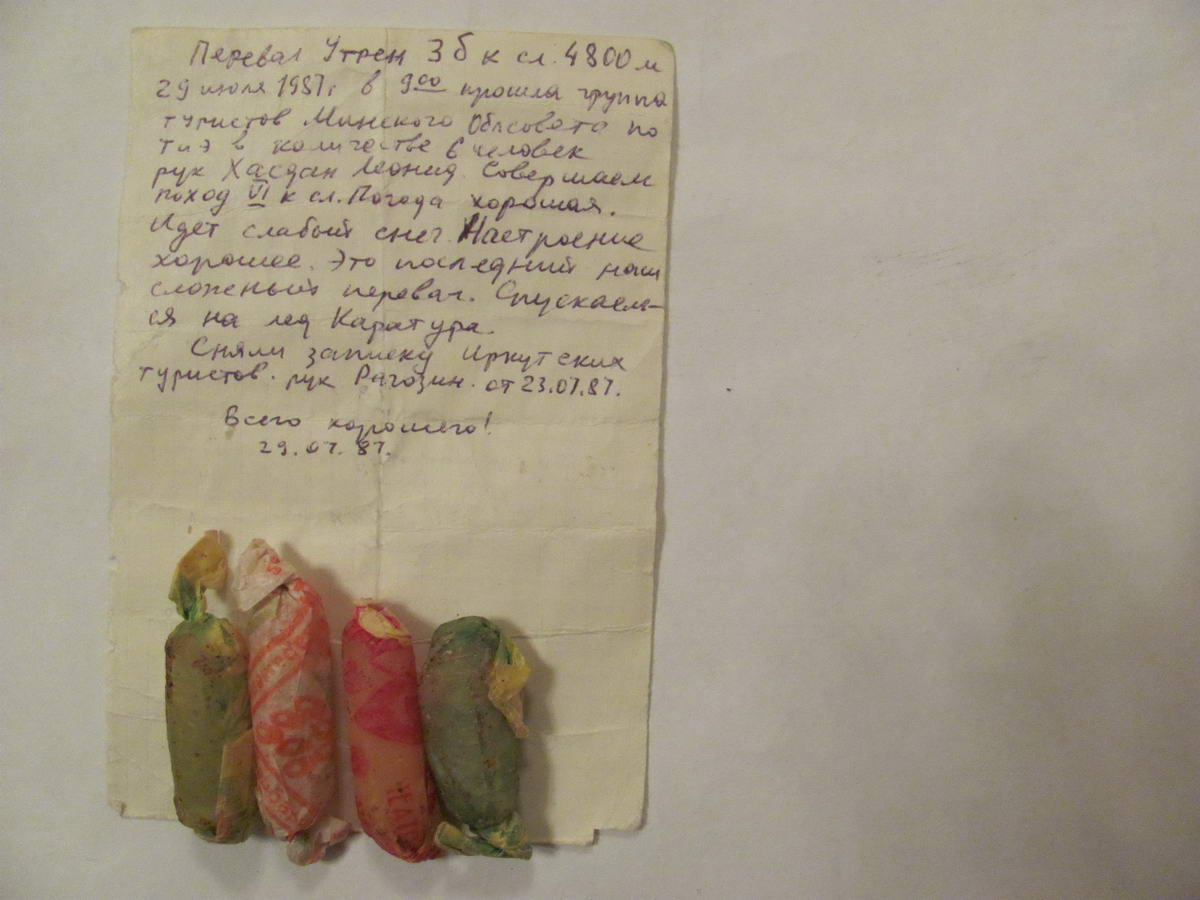 Перевал Утрен 3б к сл. 4800 м
29 июля 1987г в 9 00 прошла группа
туристов Минского Облсовета по
ТиЭ в количестве 6 человек
рук Хасдан Леонид. Совершаем
поход VI к сл. Погода хорошая.
Идет слабый снег. Настроение
хорошее. Это последний наш
сложный перевал. Спускаем-
ся на лед Каратура.
Сняли записку Иркутских
туристов. рук Рагозин. от 23.07.87.
Всего хорошего!
29.07.87.